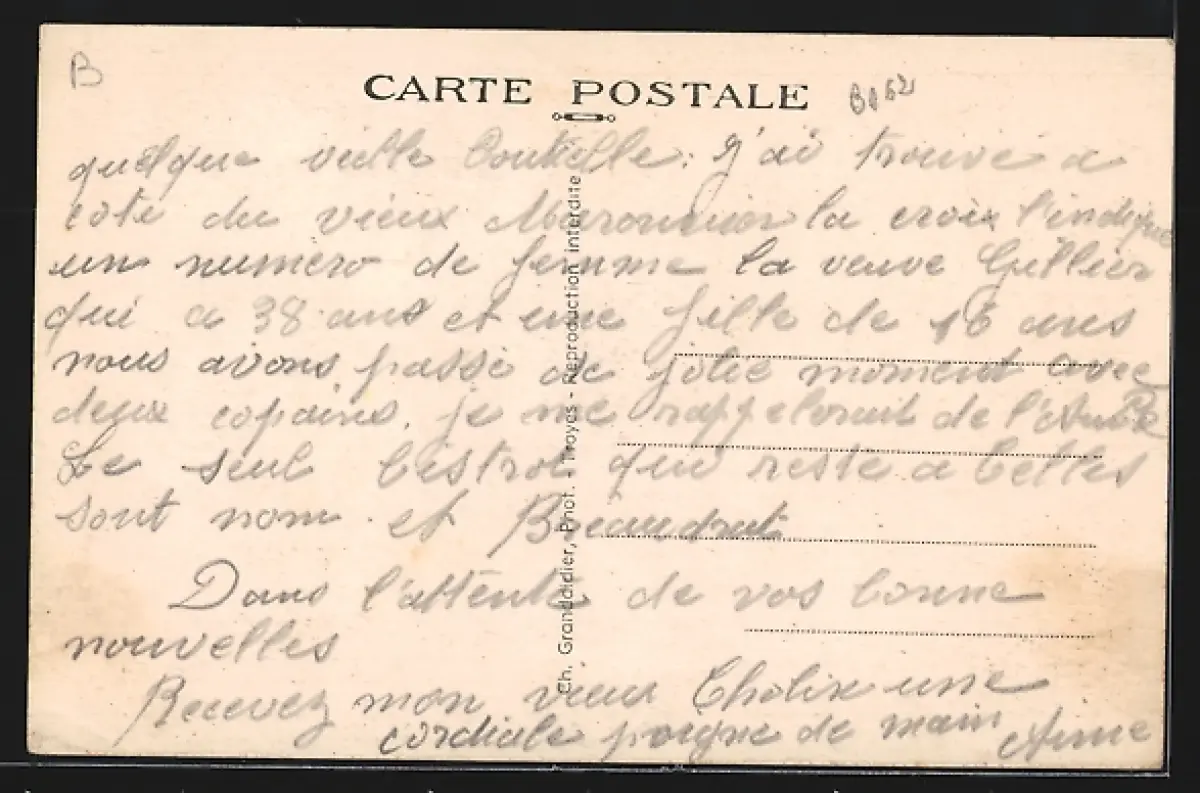 B
CARTE POSTALE
quelque vielle bouteille. j'ai trouve a
coté du vieux Maronnier la croix l'indique
un numero de femme la veuve Gillier
qui a 38 ans et une fille de 16 ans
nous avons passé de jolie moment avec
deux copains, je me rappelerait de l'
Le seul bistrot qui reste a Celles
sont nom et
Dans l'attente de vos bonne
nouvelles
Recevez mon vieux une
cordiale poigne de main Aime
Ch. Grandidier, Phot. - Troyes - Reproduction interdite